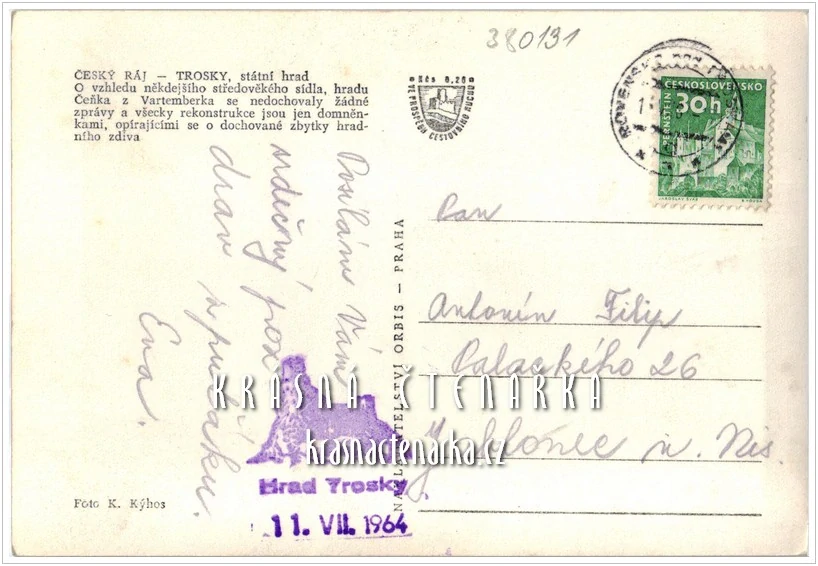 380131
ČESKÝ RÁJ — TROSKY, státní hrad
O vzhledu někdejšího středověkého sídla, hradu
Čeňka z Vartemberka se nedochovaly žádné
zprávy a všecky rekonstrukce jsou jen domněn-
kami, opírajícími se o dochované zbytky hrad-
ního zdiva
Kčs 0,20
VE PROSPĚCH CESTOVNÍHO RUCHU
ROVENSKO POD TROSKAMI
ČESKOSLOVENSKO
30h
PERNŠTEJN
Posílám Vám
srdečný poz
drav z puťáku.
Eva.
NAKLADATELSTVÍ ORBIS — PRAHA
Pan
Antonín Filip
Palackého 26
Jablonec n. Nis.
KRÁSNÁ ČTENÁŘKA
krasnactenarka.cz
Hrad Trosky
11. VII. 1964
Foto K. Kýhos